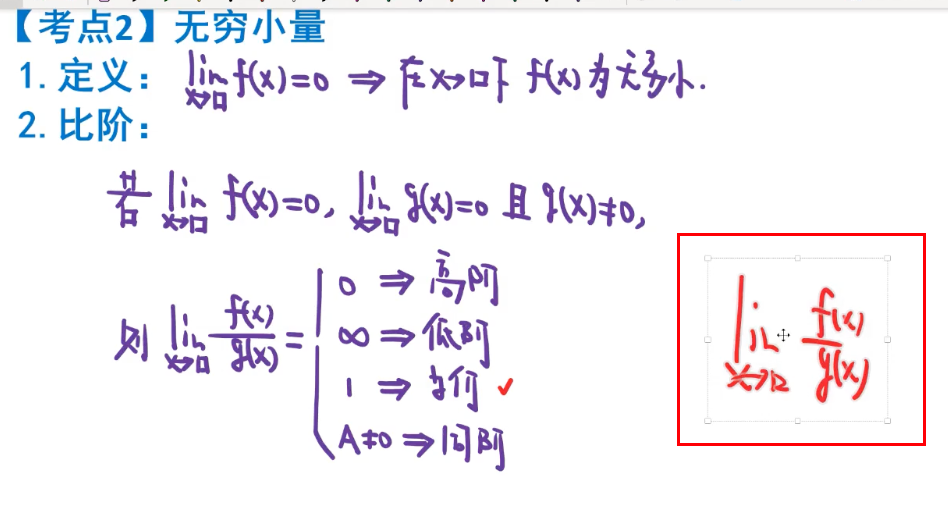 【考点2】无穷小量
1. 定义: lim x→□ f(x)=0 ⇒ 在x→□下 f(x)为无穷小.
2. 比阶:
若 lim x→□ f(x)=0, lim x→□ g(x)=0 且 g(x)≠0,
则 lim x→□ f(x)/g(x) = { 0 ⇒ 高阶
∞ ⇒ 低阶
1 ⇒ 等价 ✓
A≠0 ⇒ 同阶
lim x→□ f(x)/g(x)